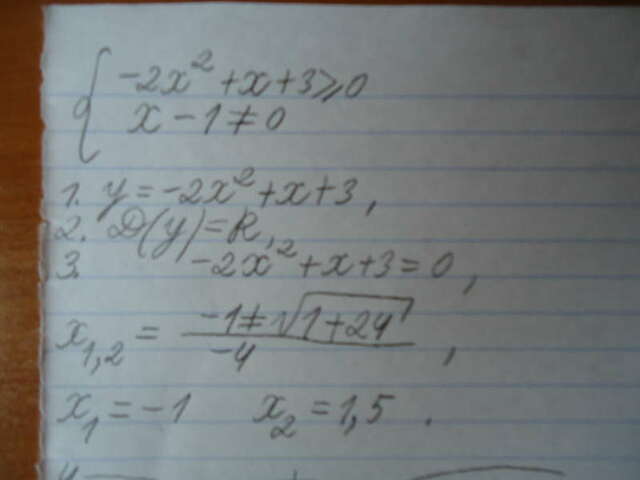 { -2x² + x + 3 ⩾ 0
x - 1 ≠ 0
1. y = -2x² + x + 3,
2. D(y) = R,
3. -2x² + x + 3 = 0,
x₁,₂ = (-1 ± √(1+24)) / -4,
x₁ = -1 x₂ = 1,5.